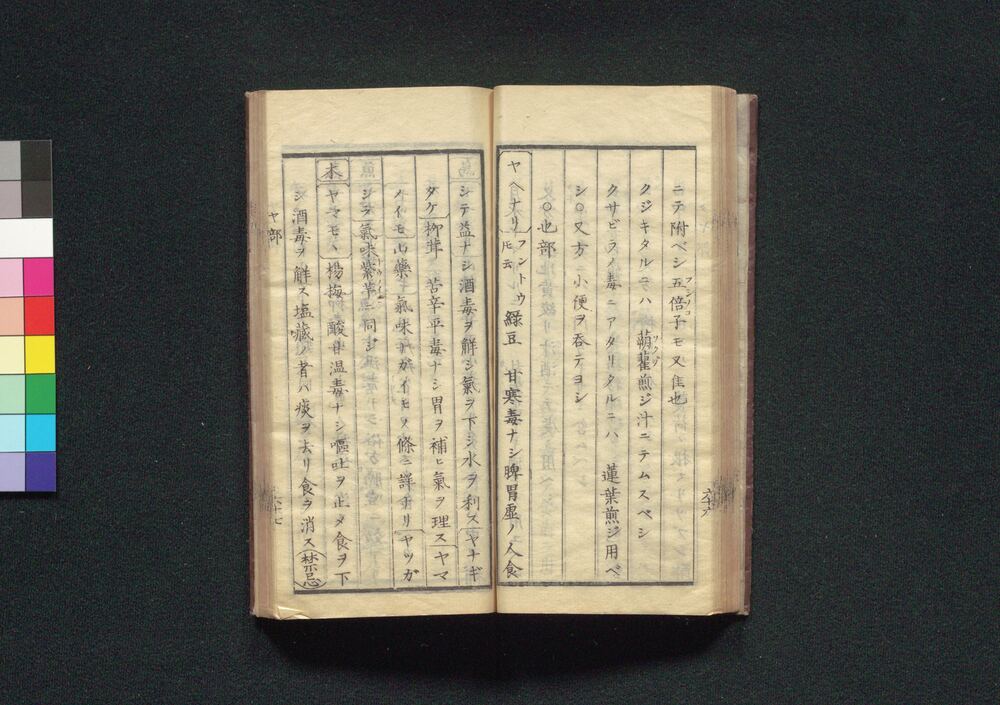 ニテ附ベシ五倍子ニモ又佳也
フシノコ
クジキタルニハ 蒴藋煎ジ汁ニテムスベシ
ソクヅ
クサビラノ毒ニアタリタルニハ 蓮葉煎ジ用ベ
シ○又方 小便ヲ呑テヨシ
○也部
ヤヘナリ フントウ 緑豆 甘寒毒ナシ脾胃虚ノ人食
トモ云
シテ益ナシ酒毒ヲ觧シ氣ヲ下シ水ヲ利ス ヤナギ
タケ 柳茸 苦辛平毒ナシ胃ヲ補ヒ氣ヲ理ス ヤマ
ノイモ 山藥 氣味ナガイモノ條ニ詳ナリ ヤツガ
シラ 氣味紫芋ニ同ジ
木
ヤマモヽ 楊梅 酸甘温毒ナシ嘔吐ヲ正メ食ヲ下
シ酒毒ヲ觧ス塩藏ノ者ハ痰ヲ去リ食ヲ消ス 禁忌
ヤ部
六十六
六十七